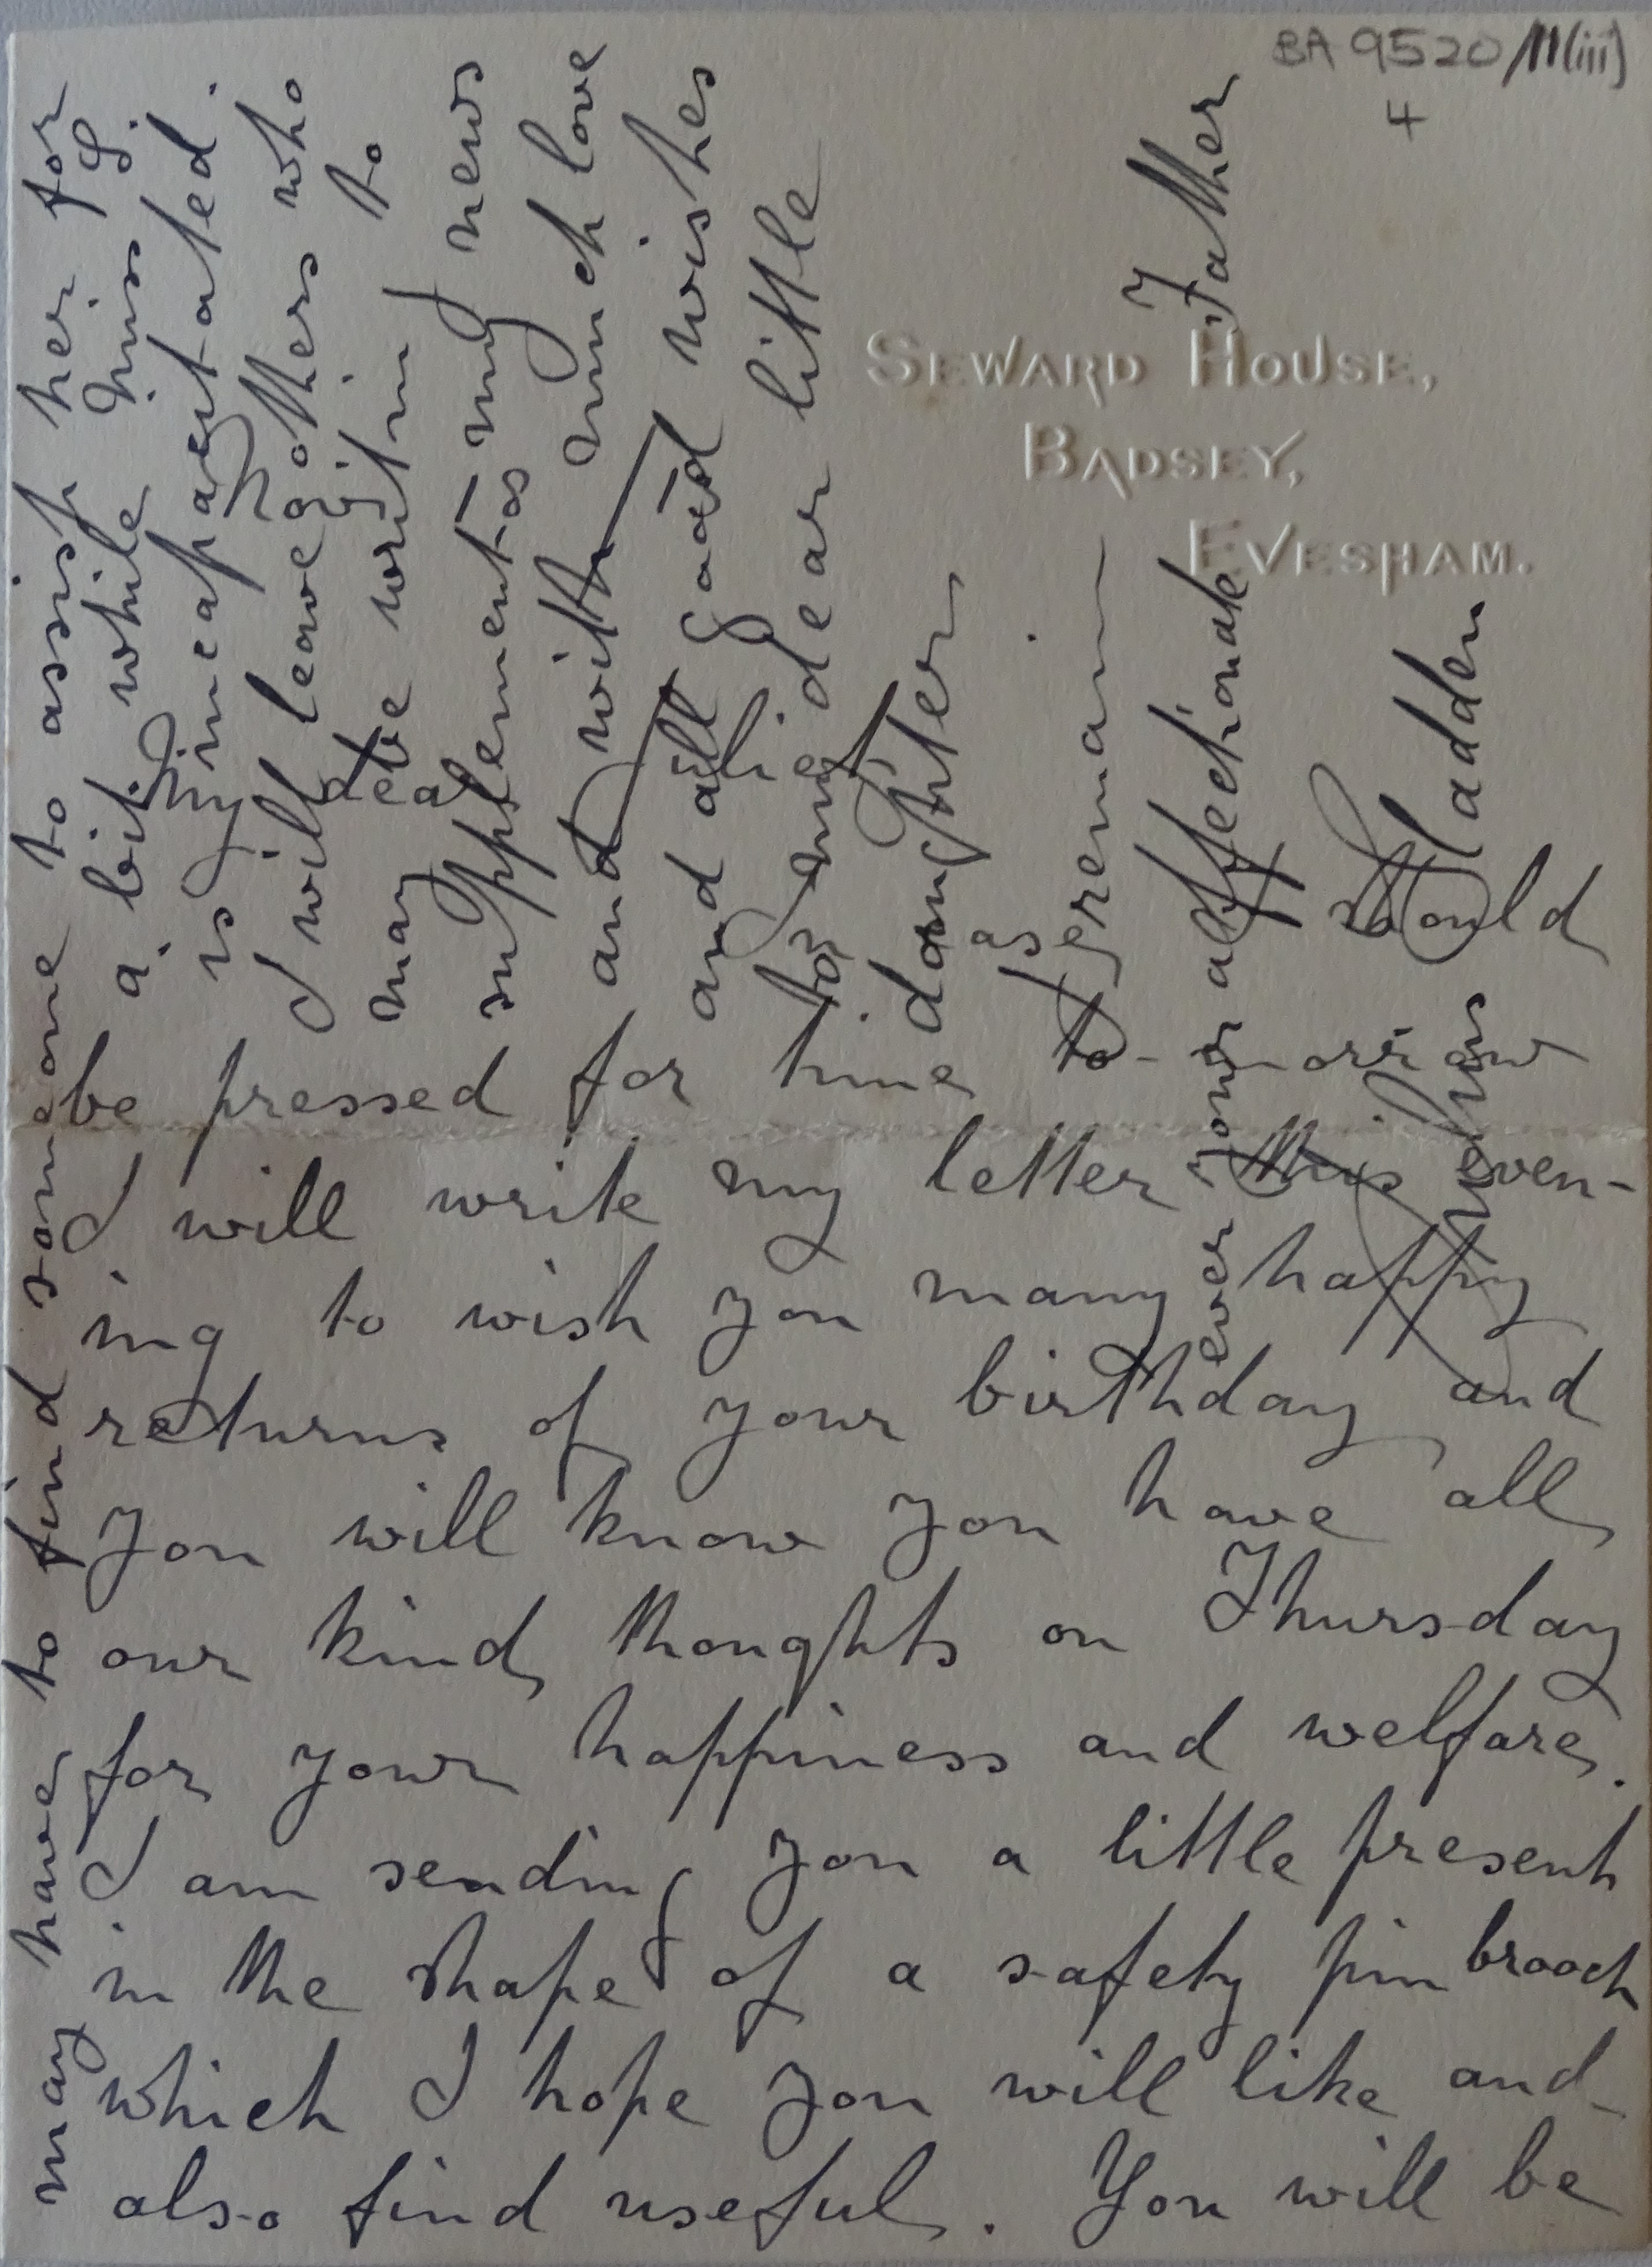 BA 9520/11(iii)
4
SEWARD HOUSE,
BADSEY,
EVESHAM.
My dear Juliet
as should
be pressed for time to-morrow
I will write my letter this even-
ing to wish you many happy
returns of your birthday and
you will know you have all
our kind thoughts on Thursday
for your happiness and welfare.
I am sending you a little present
in the shape of a safety pin brooch
which I hope you will like and
also find useful. You will be
may have to find someone to assist her for
a bit while Miss G.
is incapacitated.
I will leave others who
may be writing to
supplement my news
and with much love
and all good wishes
to my dear little
daughter
I remain
ever your affectionate Father
Julius Sladden